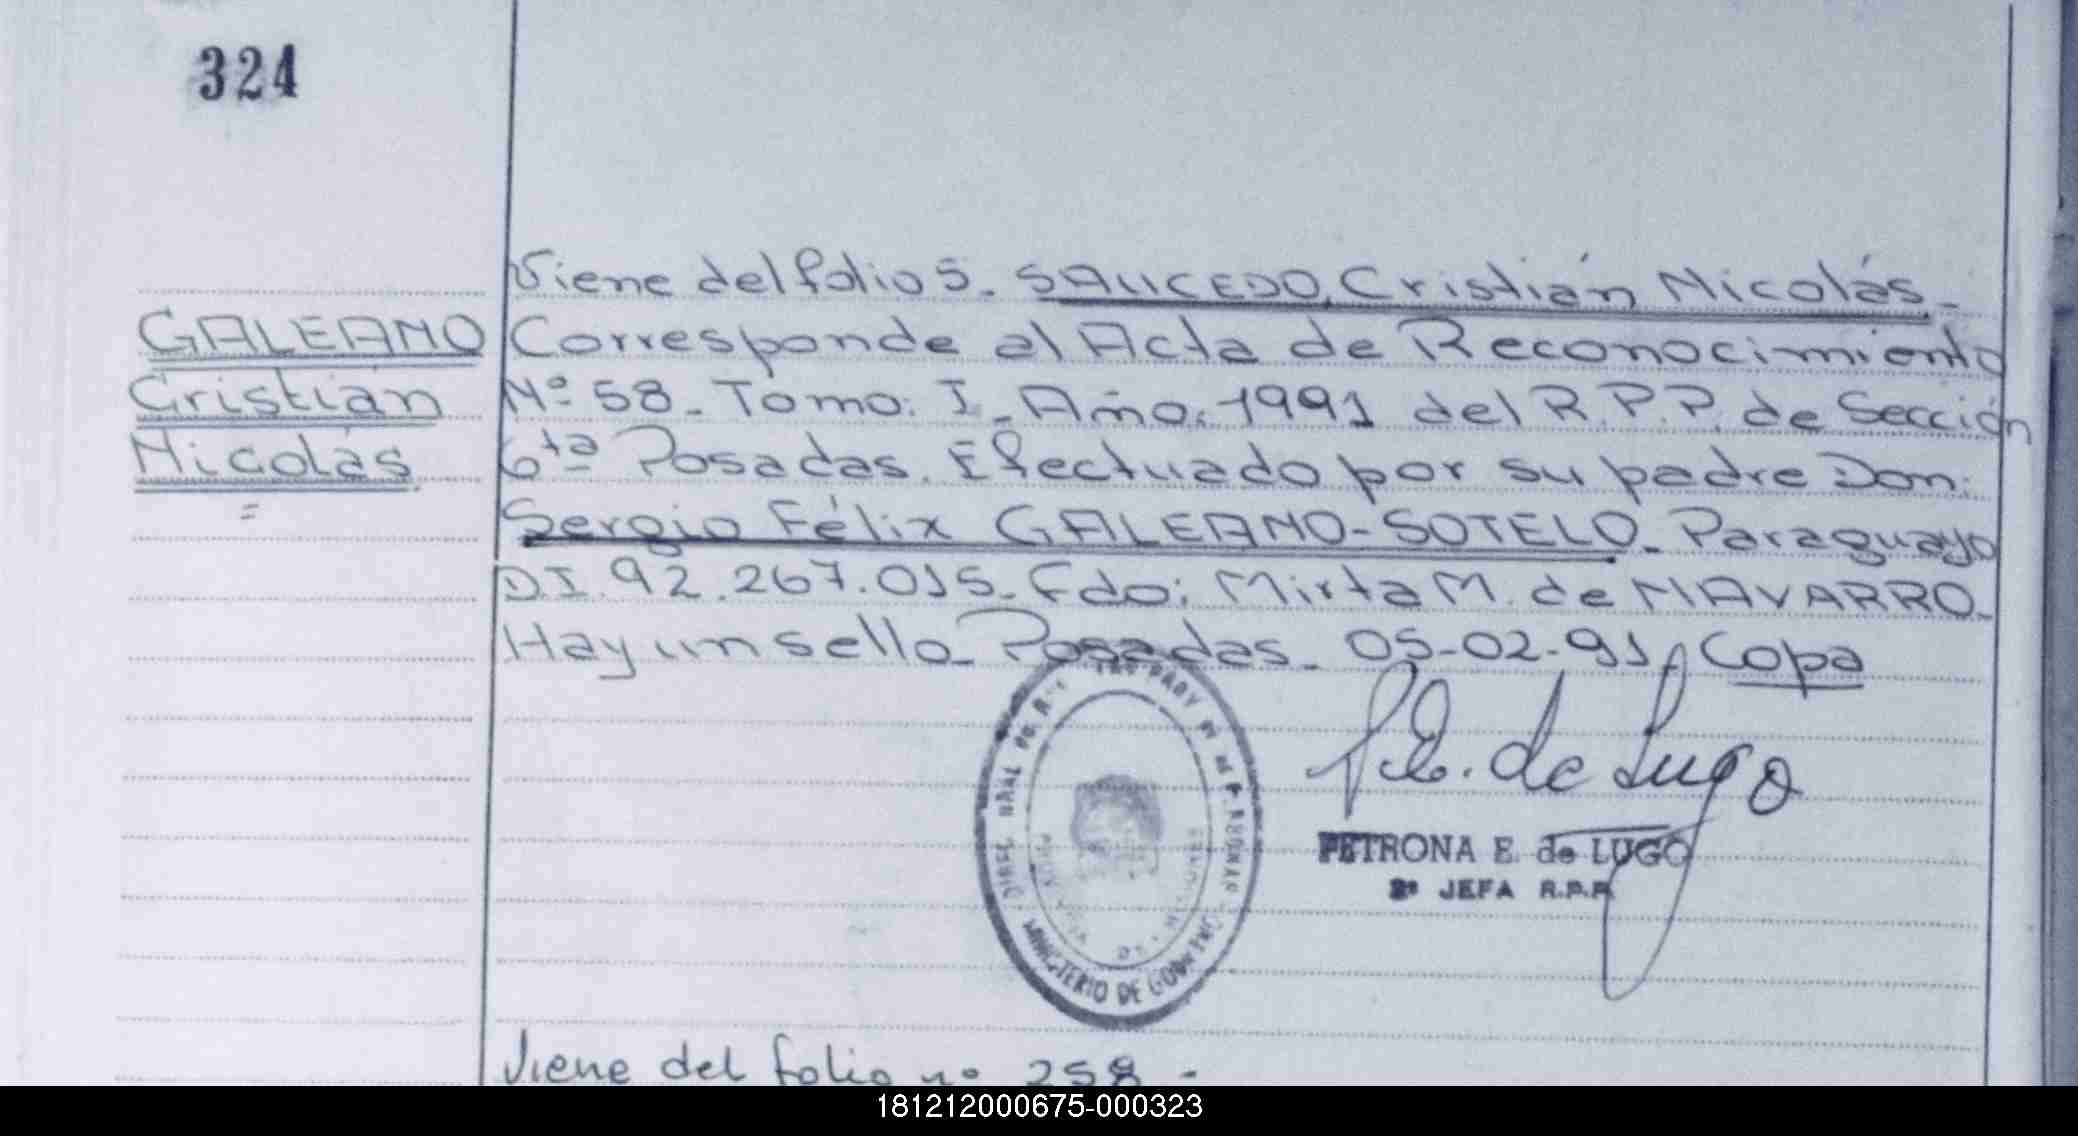 324
GALEANO
Cristián
Nicolás
=
Viene del folio 5. SAUCEDO, Cristián Nicolás.
Corresponde al Acta de Reconocimiento
Nº 58. Tomo: I. Año: 1991 del R.P.P. de Sección
6ta Posadas. Efectuado por su padre Don:
Sergio Félix GALEANO-SOTELO. Paraguayo
D.I. 92.267.015. Fdo: Mirta M. de NAVARRO.
Hay un sello. Posadas. 05-02-91. Copa
P.E. de Lugo
PETRONA E. de LUGO
2ª JEFA R.P.P.
MINISTERIO DE GOBIERNO
Viene del folio nº 258 -
181212000675-000323